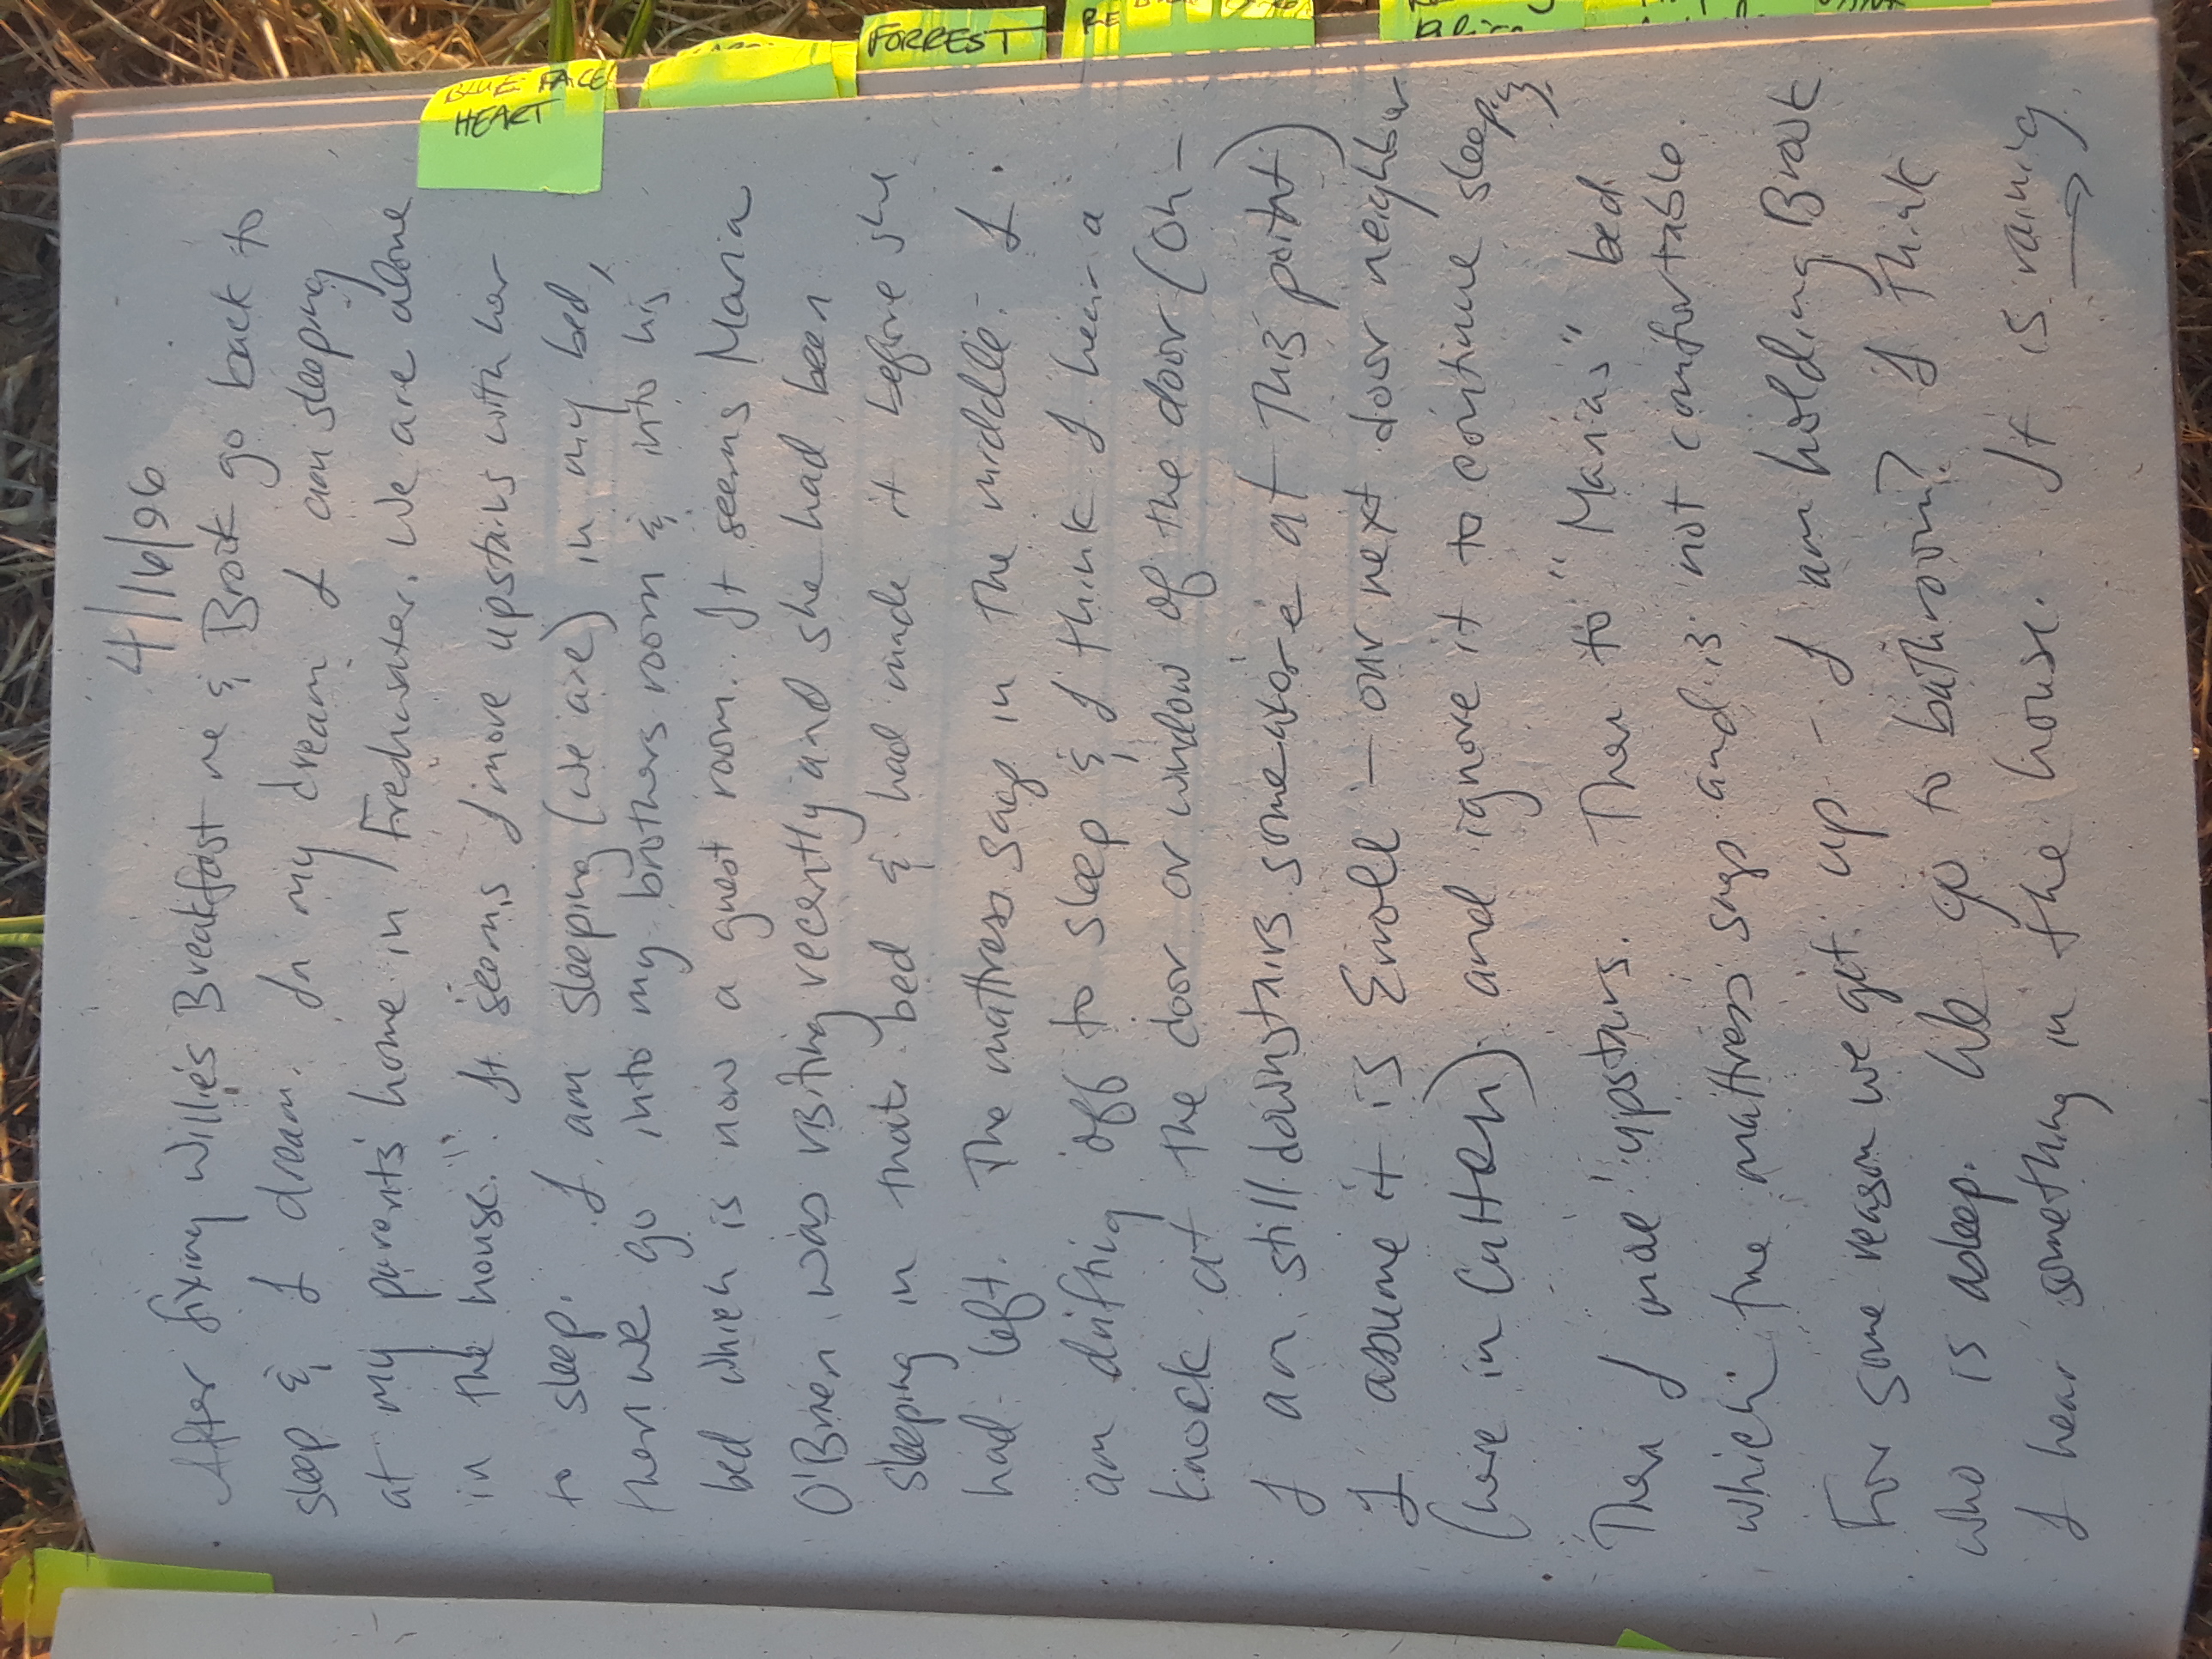 BLUE FACE
HEART
FORREST
RE
4/16/96
After fixing Willie's Breakfast me & Brook go back to
sleep & I dream. In my dream I am sleeping
at my parents' home in Freshwater. We are alone
in the house." It seems I move upstairs with her
to sleep. I am sleeping (we are) in my bed,
then we go into my brothers room & into his
bed which is now a guest room. It seems Maria
O'Brien was visiting recently and she had been
sleeping in that bed & had made it before she
had left. The mattress sags in the middle. I
am drifting off to sleep & I think I hear a
knock at the door or window of the door (oh -
I am still downstairs somewhere at this point)
I assume it is Enroll - our next door neighbor
(here in Cutten) and ignore it to continue sleeping.
Then I move upstairs. Then to "Marias" bed
which the mattress sags and is not comfortable.
For some reason we get up - I am holding Brook
who is asleep. We go to bathroom? I think
I hear something in the house. It is raining.
→